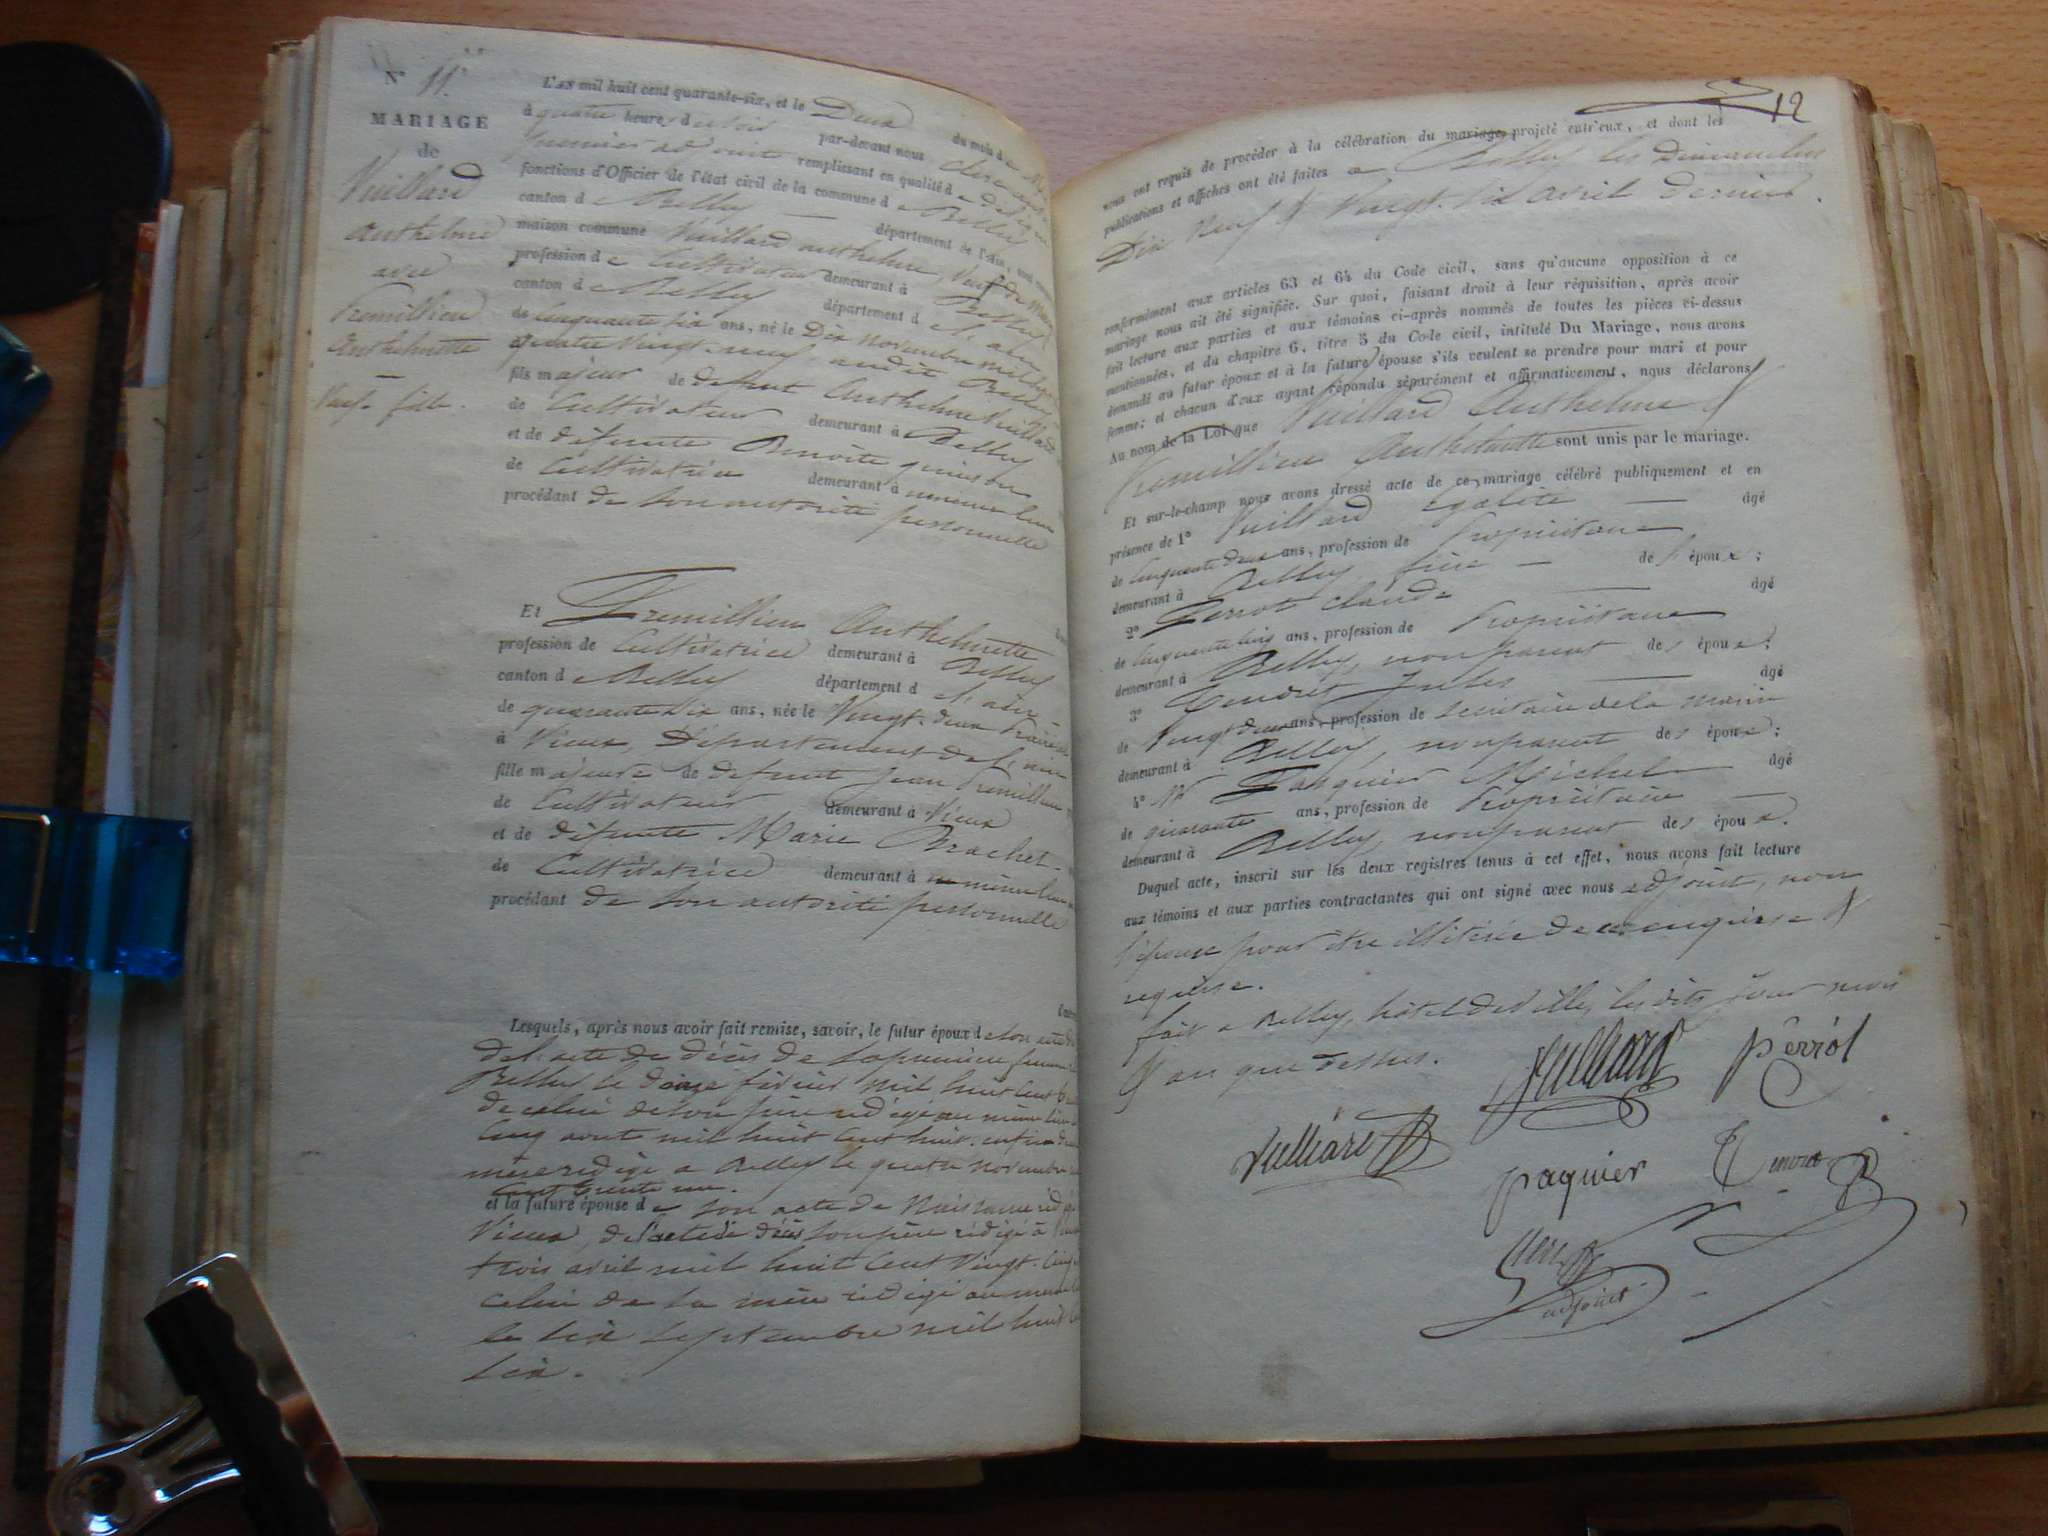 N° 11.
MARIAGE
de
Vuillard
Anthelme
avec
Tremillieu
Anthelmette
Veuf - fille.
L'AN mil huit cent quarante-six, et le Deux du mois d
à quatre heures du soir par-devant nous
premier adjoint remplissant en qualité de
fonctions d'Officier de l'état civil de la commune de Belley
canton de Belley département de l'Ain,
maison commune Vuillard Anthelme, Veuf de
profession de Cultivateur demeurant à Belley
canton de Belley département de l'ain
de cinquante six ans, né le Dix Novembre mil sept
quatre Vingt-neuf, audit Belley
fils majeur de defunt Anthelme Vuillard
de Cultivateur demeurant à Belley
et de défunte Benoite quinson
de Cultivatrice demeurant à même lieu
procédant de son autorité personnelle
Et Tremillieu Anthelmette
profession de Cultivatrice demeurant à Belley
canton de Belley département de l'ain
de quarante six ans, née le Vingt-deux
à Vieux, Département de l'ain
fille majeure de defunt Jean Tremillieu
de Cultivateur demeurant à Vieux
et de défunte Marie Brachet
de Cultivatrice demeurant à même lieu
procédant de son autorité personnelle
Lesquels, après nous avoir fait remise, savoir, le futur époux de son acte de
de l'acte de décès de sa première femme
Belley le douze février mil huit cent
de celui de son père rédigé au même lieu
cinq aout mil huit cent huit. enfin de
mère rédigé a Belley le quatre novembre
cent trente un.
et la future épouse de son acte de Naissance rédigé
Vieux, de l'acte de décès son père rédigé à
trois avril mil huit cent Vingt-cinq
celui de sa mère rédigé au même
le six septembre mil huit
six.
12
nous ont requis de procéder à la célébration du mariage projeté entr'eux, et dont les
publications et affiches ont été faites a Belley les Dimanches
Dix Neuf & Vingt-six avril dernier.
conformément aux articles 63 et 64 du Code cicil, sans qu'aucune opposition à ce
mariage nous ait été signifiée. Sur quoi, faisant droit à leur réquisition, après avoir
fait lecture aux parties et aux témoins ci-après nommés de toutes les pièces ci-dessus
mentionnées, et du chapitre 6, titre 5 du Code civil, intitulé Du Mariage, nous avons
demandé au futur époux et à la future épouse s'ils veulent se prendre pour mari et pour
femme; et chacun d'eux ayant répondu séparément et affirmativement, nous déclarons
Au nom de la Loi que Vuillard Anthelme &
Tremillieu Anthelmette sont unis par le mariage.
Et sur-le-champ nous avons dressé acte de ce mariage célébré publiquement et en
présence de 1° Vuillard Egalité âgé
de cinquante deux ans, profession de Propriétaire
demeurant à Belley frère de l'époux;
2° Perrot Claude âgé
de cinquante cinq ans, profession de Propriétaire
demeurant à Belley, non parent des époux;
3° Tendret Jules âgé
de Vingt deux ans, profession de secrétaire de la mairie
demeurant à Belley, non parent des époux;
4° Mr Pasquier Michel âgé
de quarante ans, profession de Propriétaire
demeurant à Belley, non parent des époux.
Duquel acte, inscrit sur les deux registres tenus à cet effet, nous avons fait lecture
aux témoins et aux parties contractantes qui ont signé avec nous adjoint, non
l'épouse pour être illitérée de ce enquise &
requise.
fait a Belley, hôtel de Ville, les dits jour mois
& an que dessus.
Vuilliard Pèrròt
Vulliard
paquier Tendret
adjoint